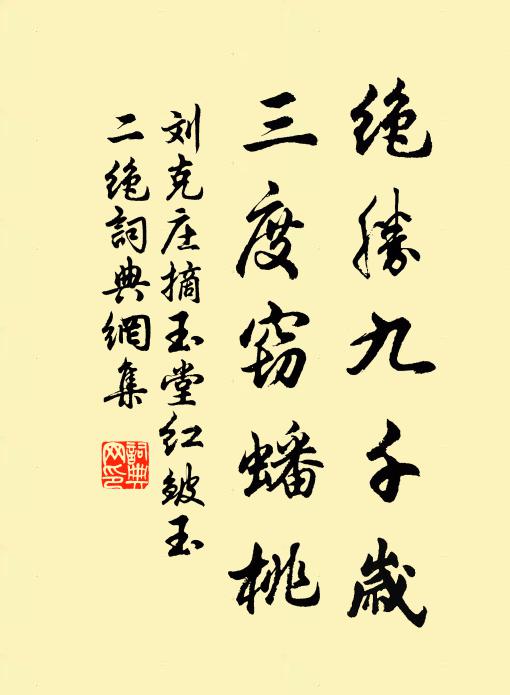 绝胜九千岁
三度窃蟠桃
刘克庄摘玉堂红皱玉
二绝词典网集
词典网印